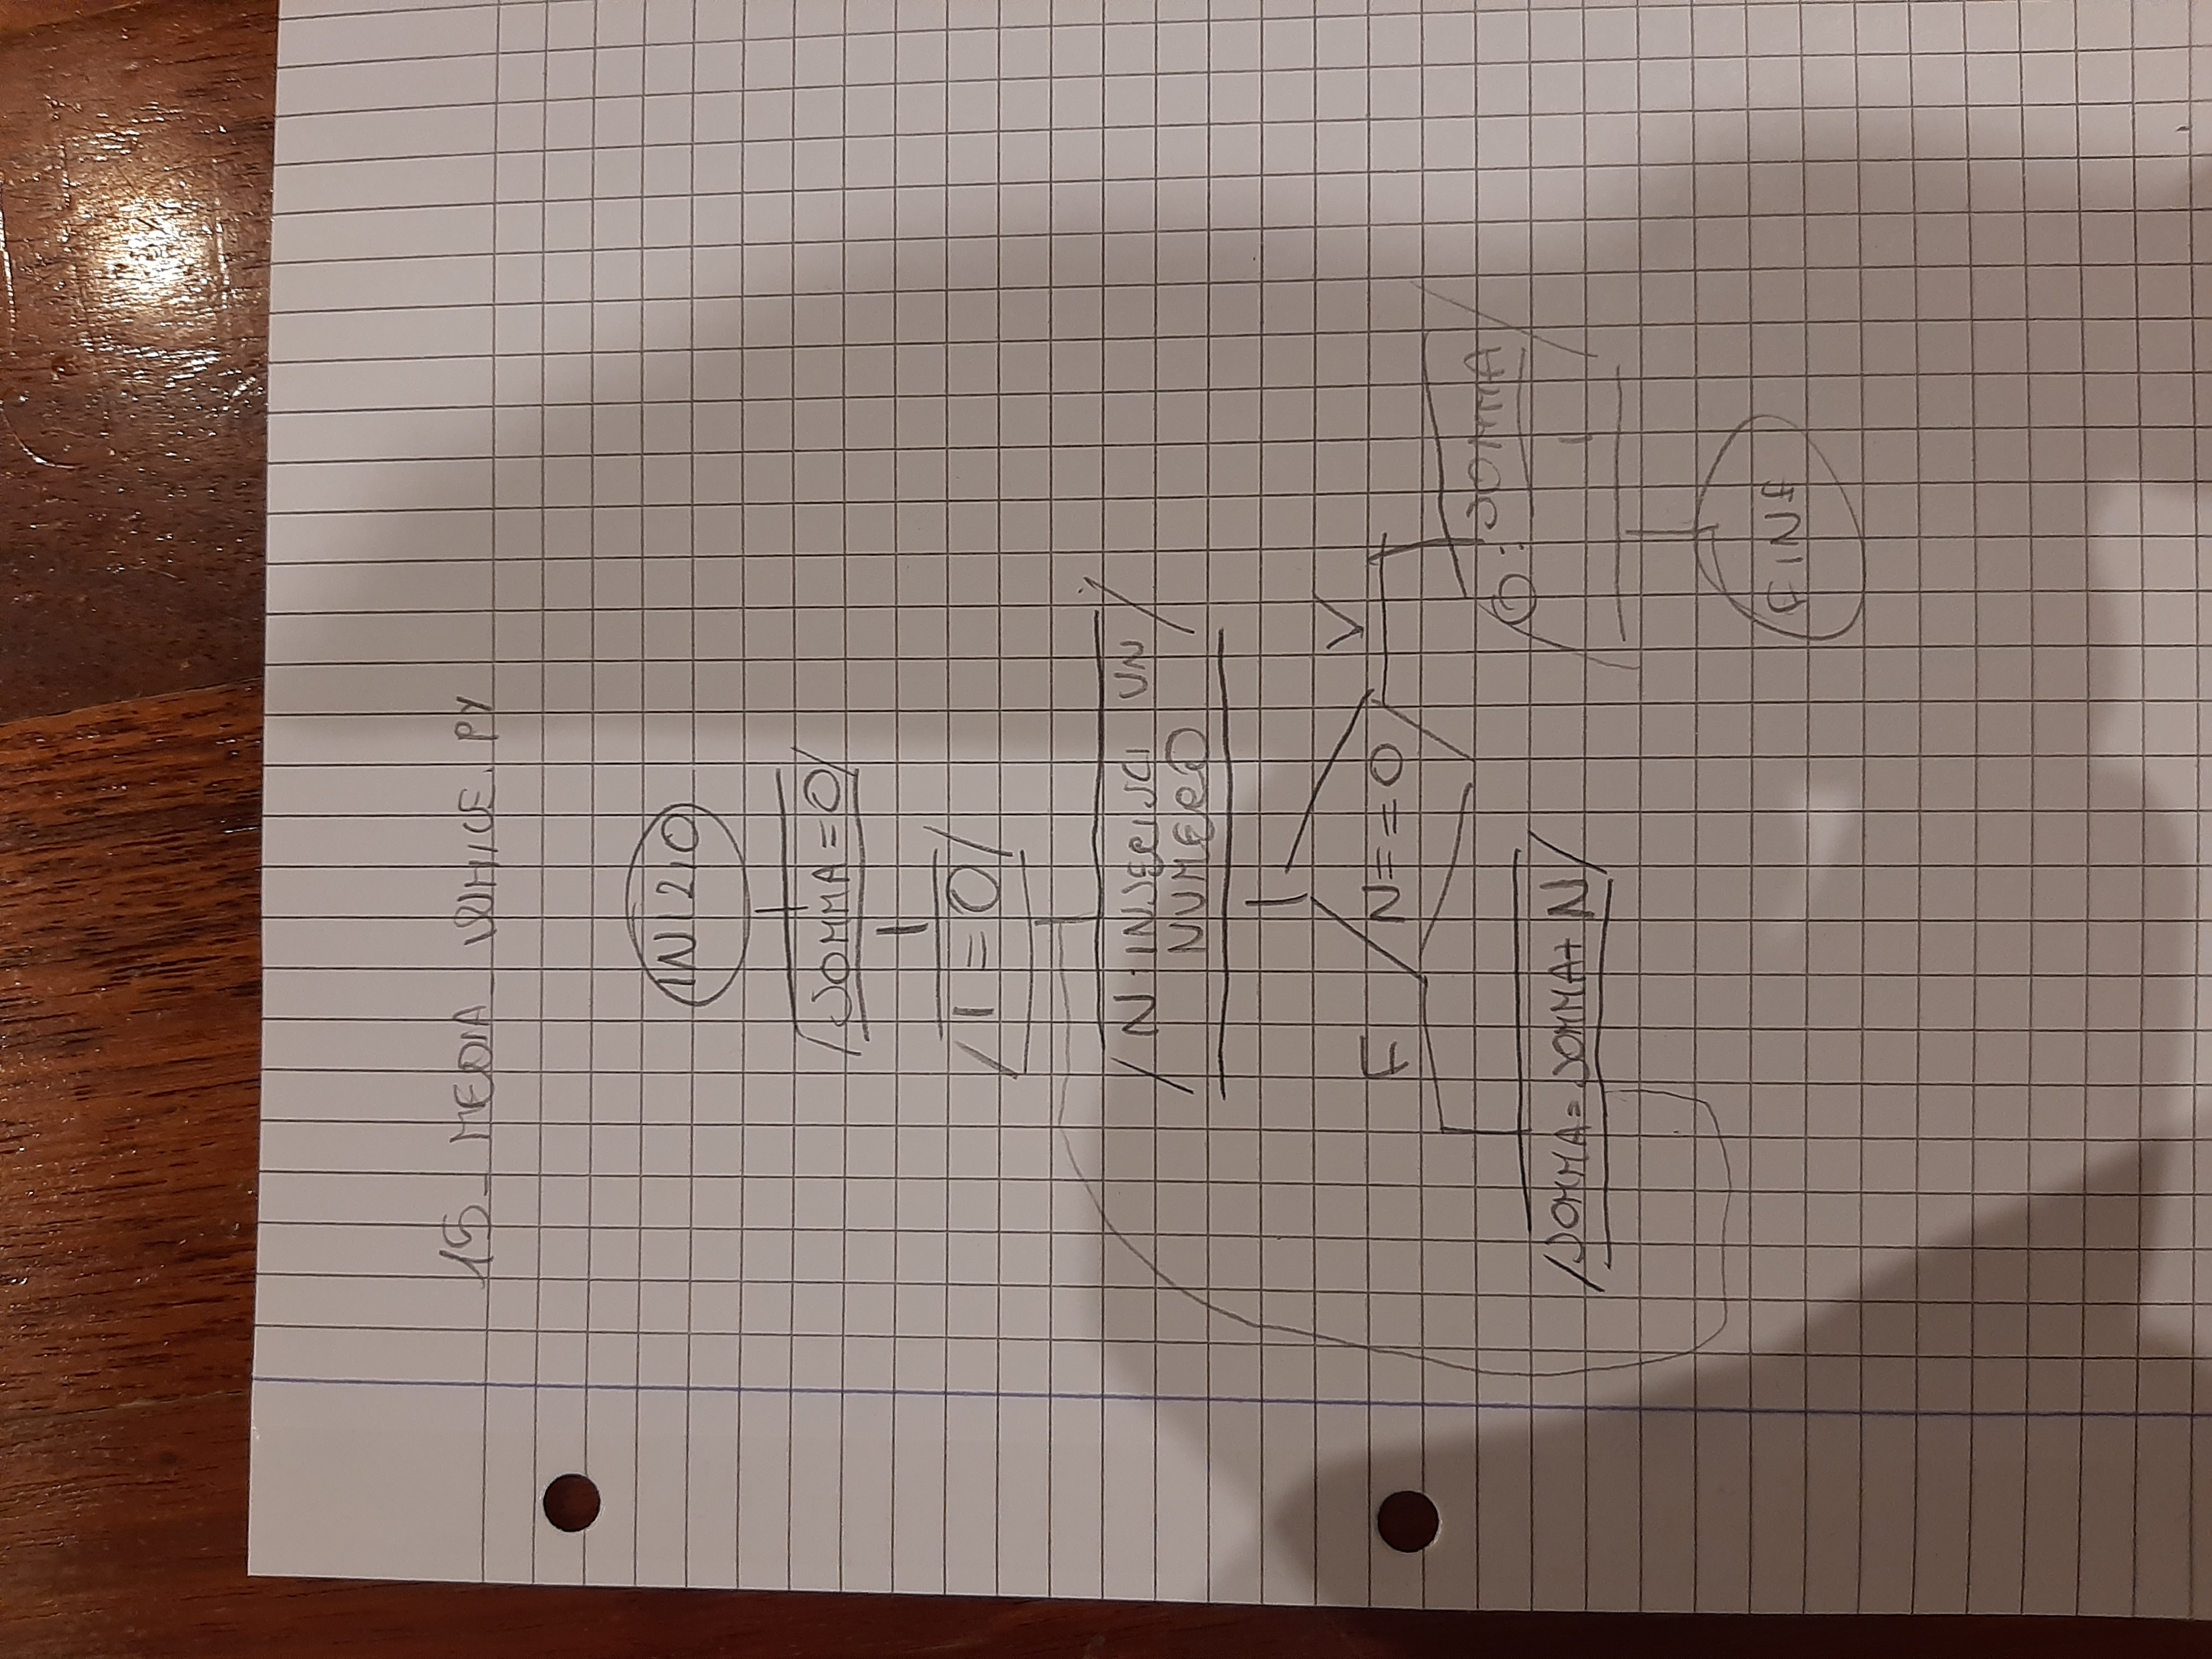 15_MEDIA_WHILE.PY
INIZIO
SOMMA=0
I=0
N:INSERISCI UN
NUMERO
N==0
F
V
SOMMA=SOMMA+N
O: SOMMA
I
FINE